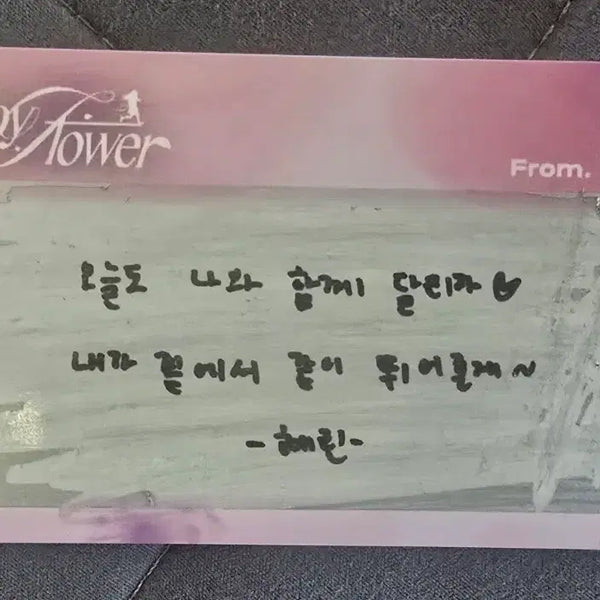 Flower
From.
오늘도 나와 함께 달리자♡
내가 곁에서 같이 뛰어줄게~
-혜린-